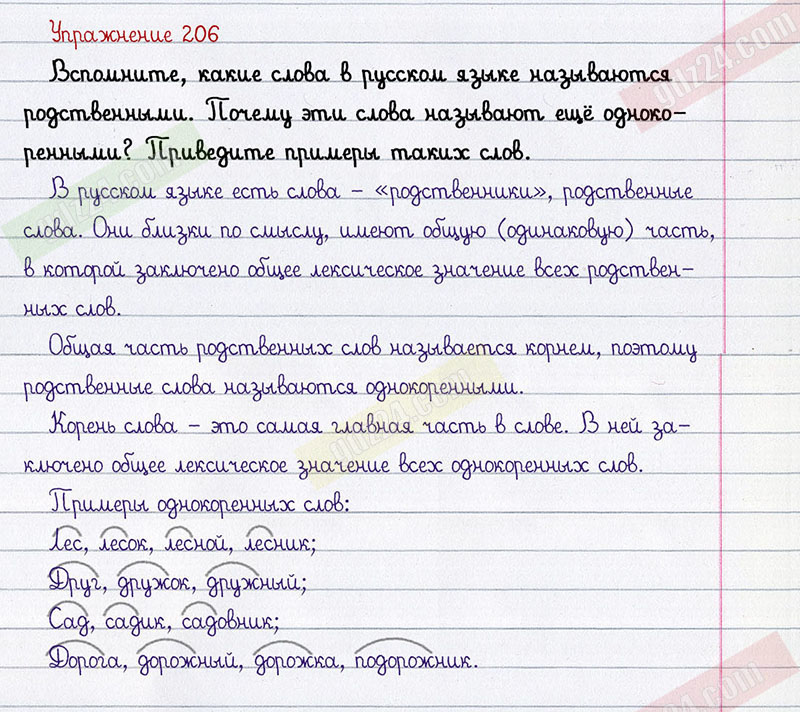 Упражнение 206
Вспомните, какие слова в русском языке называются
родственными. Почему эти слова называют ещё одноко-
ренными? Приведите примеры таких слов.
В русском языке есть слова – «родственники», родственные
слова. Они близки по смыслу, имеют общую (одинаковую) часть,
в которой заключено общее лексическое значение всех родствен-
ных слов.
Общая часть родственных слов называется корнем, поэтому
родственные слова называются однокоренными.
Корень слова – это самая главная часть в слове. В ней за-
ключено общее лексическое значение всех однокоренных слов.
Примеры однокоренных слов:
Лес, лесок, лесной, лесник;
Друг, дружок, дружный;
Сад, садик, садовник;
Дорога, дорожный, дорожка, подорожник.
gdz24.com
gdz24.com
gdz24.com
gdz24.com